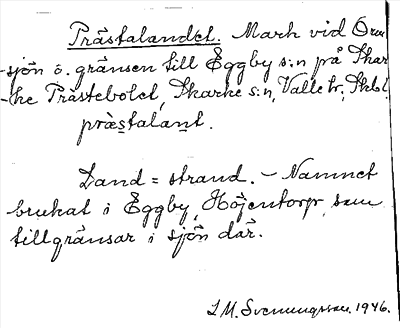 Prästalandet. Mark vid Orm
-sjön ö. gränsen till Eggby s:n på Skar
-ke Prästebolet, Skarke s:n, Valle hr, Skbl.
prästalant.
Land = strand. - Namnet
brukat i Eggby, Höjentorp, som
tillgränsar i sjön där.
I.M. Svenungsson. 1946.